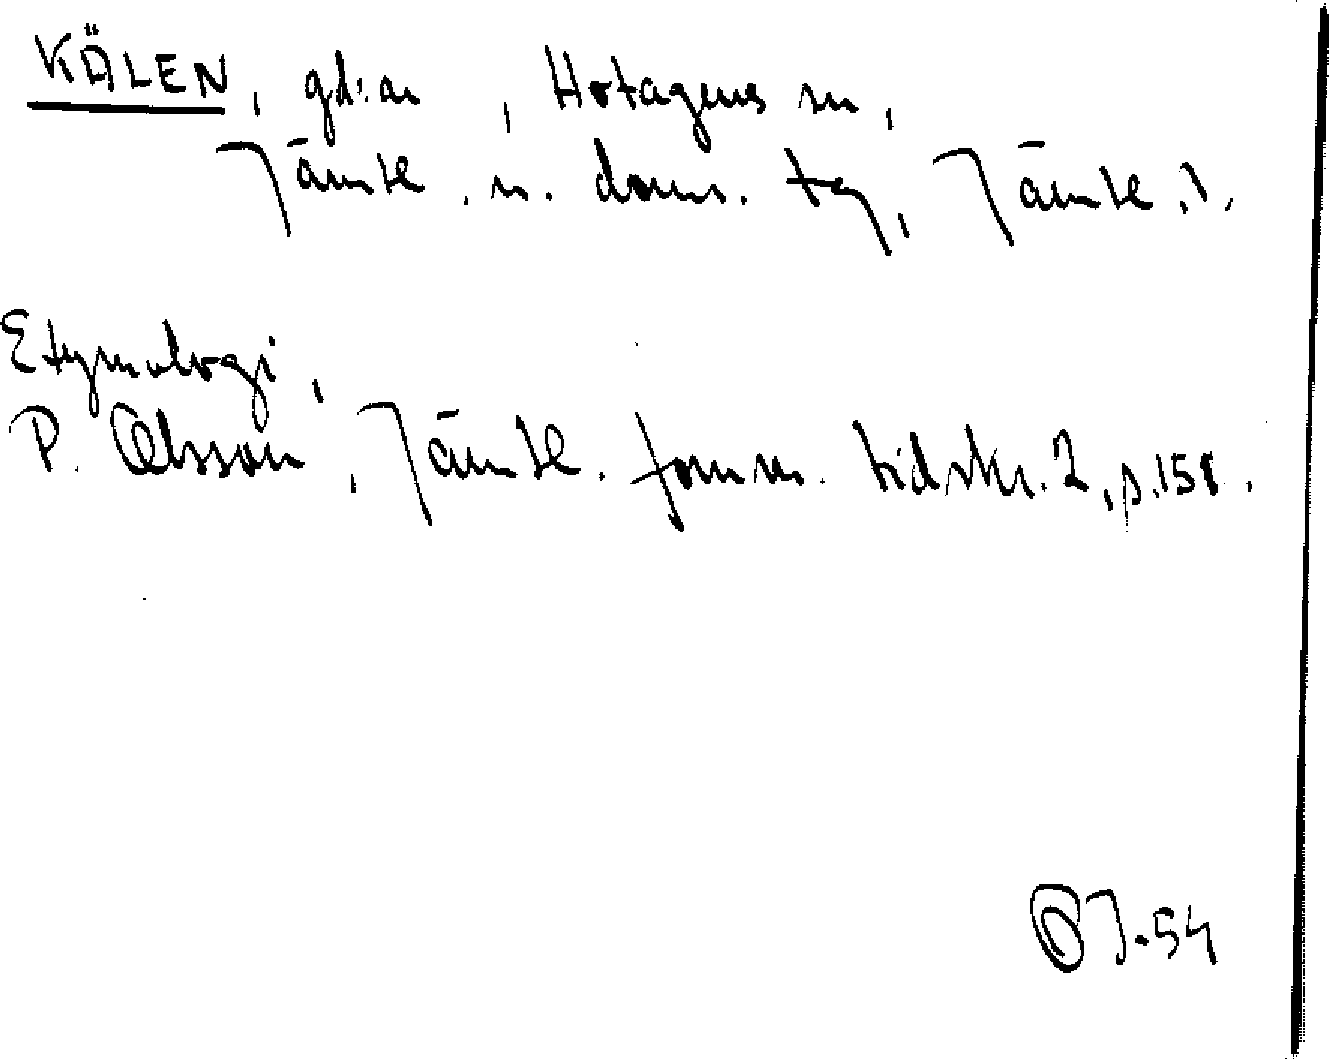 KÄLEN, gd:ar, Hotagens sn,
Jämtl. n. doms. tg, Jämtl. l.
Etymologi,
P. Olsson, Jämtl. fornm. tidskr. 2, s. 158.
OJ.54